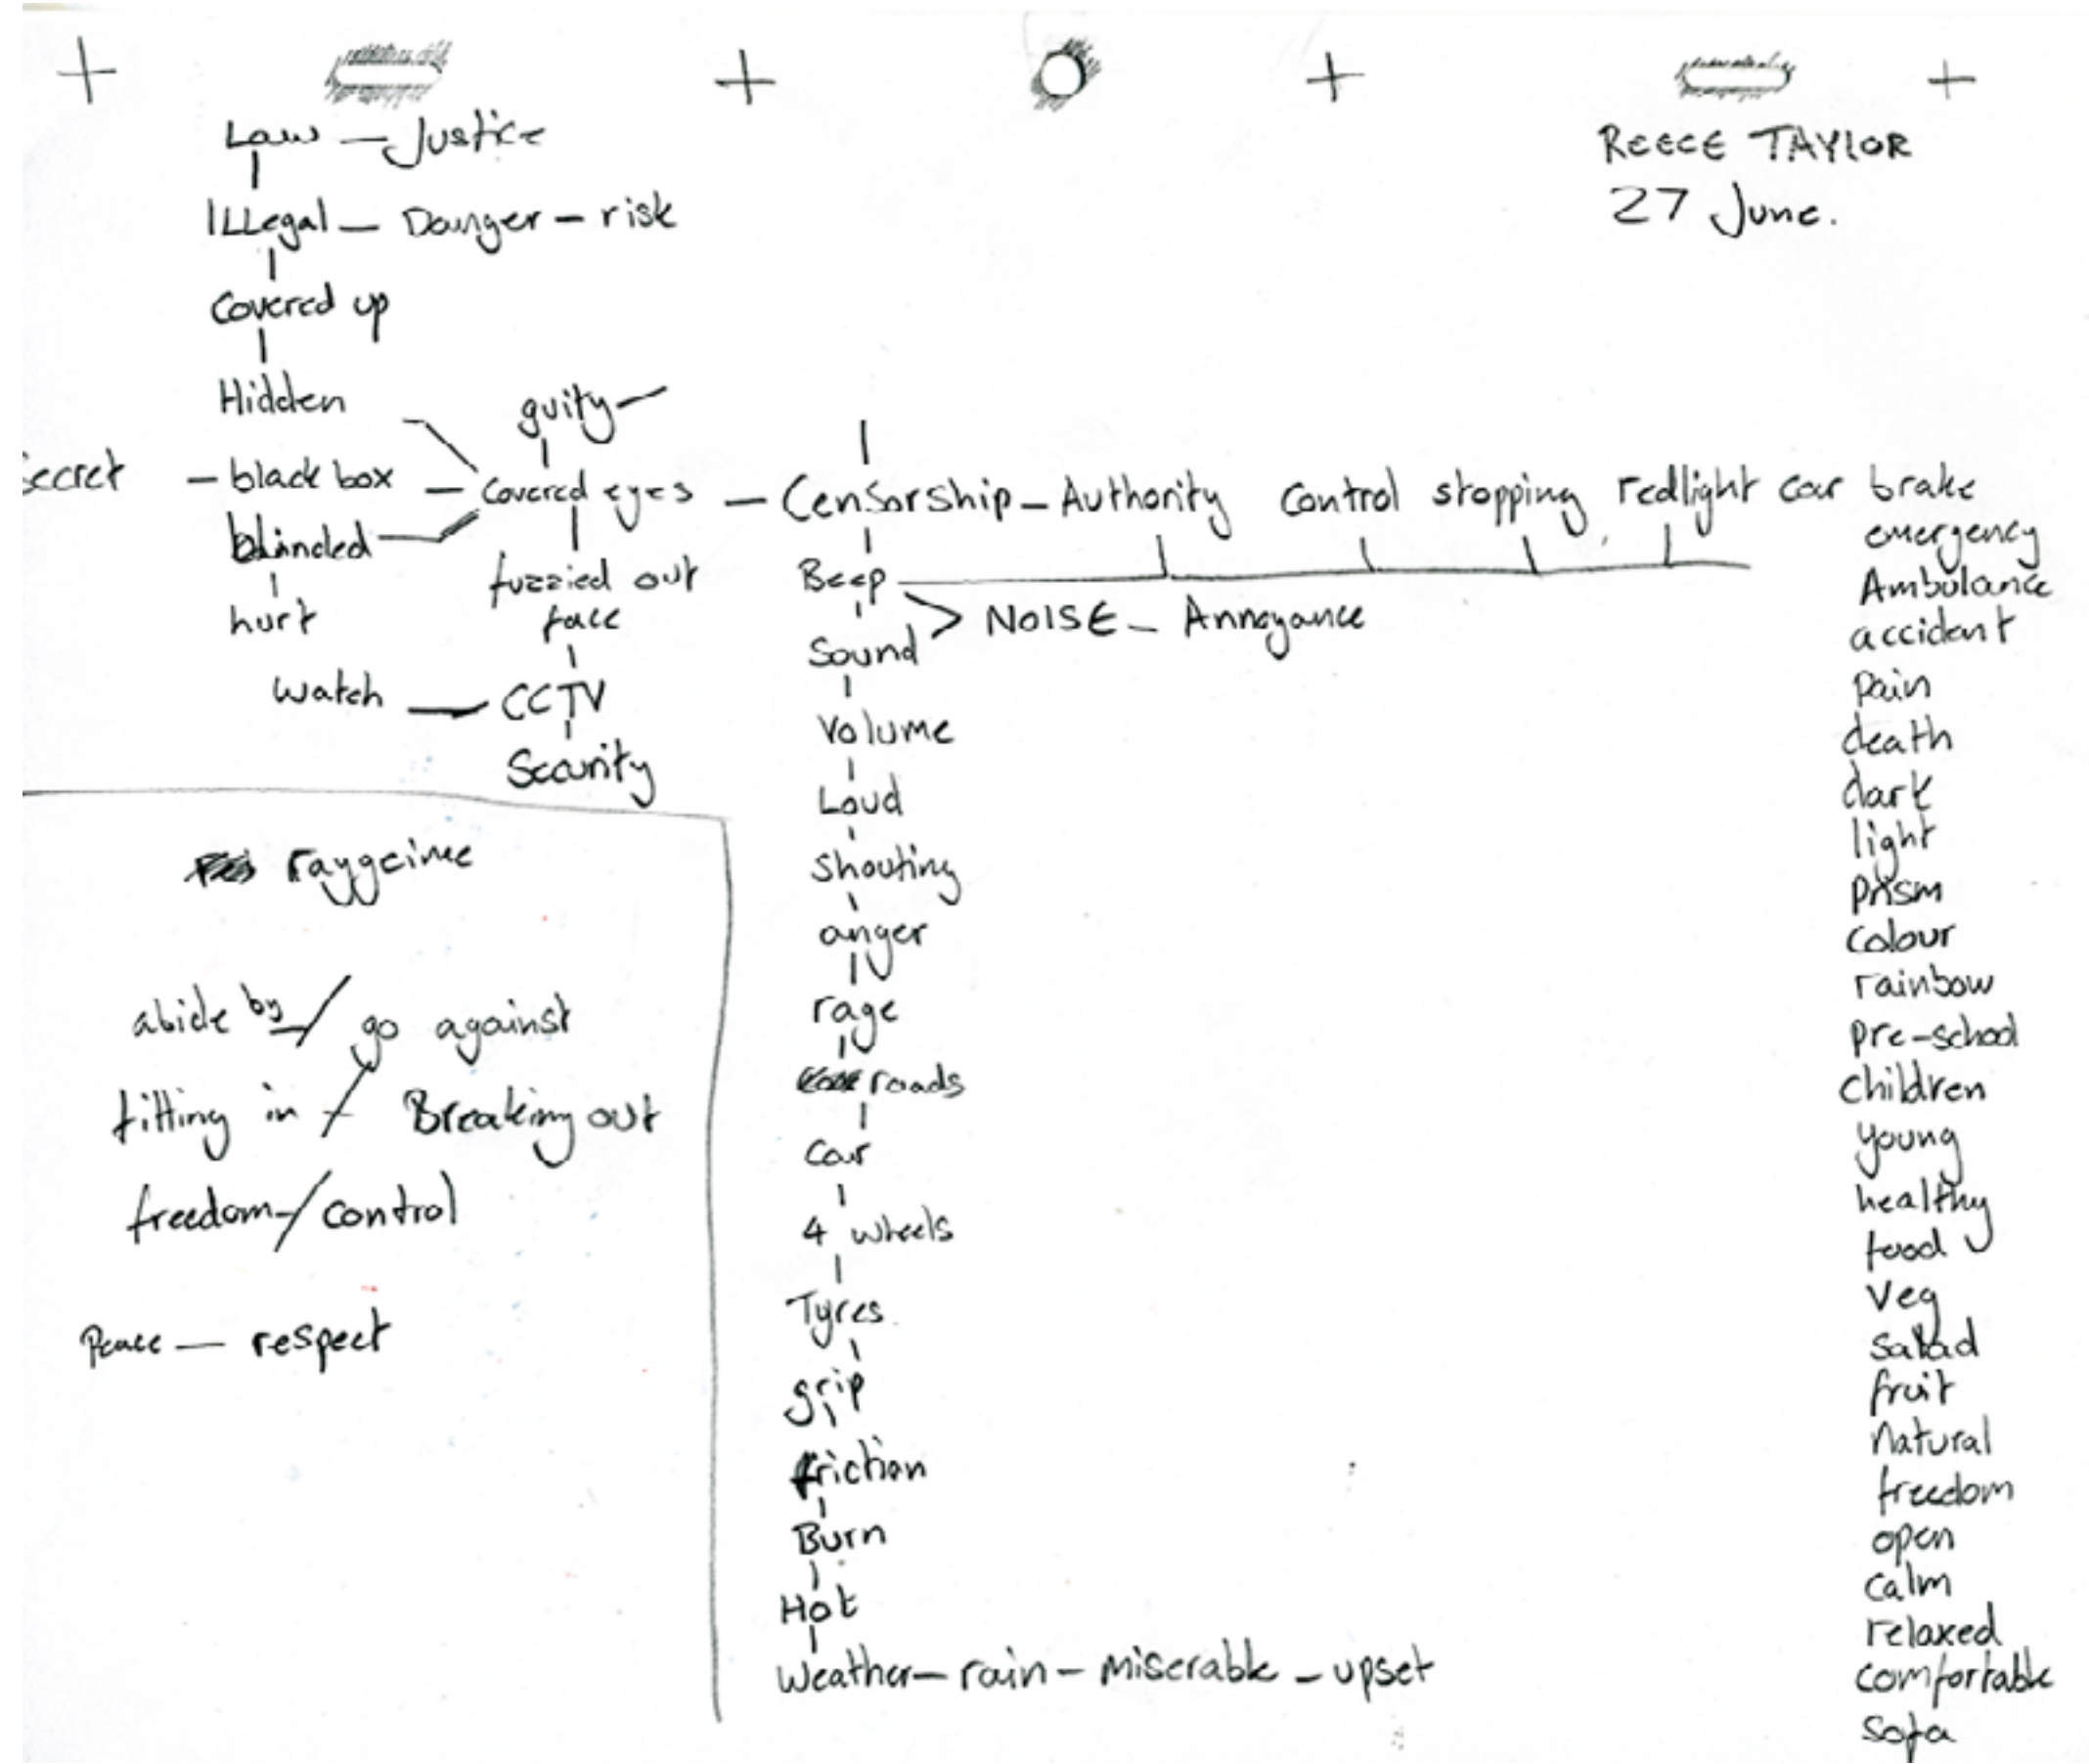 REECE TAYLOR
27 June.
Law — Justice
Illegal — Danger — risk
Covered up
Hidden
guity —
Secret — black box — Covered eyes — Censorship — Authority Control stopping redlight car brake
blinded
hurt
fuzzied out
face
Watch — CCTV
Security
Beep
NOISE — Annoyance
Sound
Volume
Loud
Shouting
anger
rage
roads
Car
4 wheels
Tyres
grip
friction
Burn
Hot
Weather — rain — miserable — upset
emergency
Ambulance
accident
pain
death
dark
light
prism
colour
rainbow
pre-school
children
young
healthy
food
veg
salad
fruit
natural
freedom
open
calm
relaxed
comfortable
sofa
abide by / go against
fitting in / Breaking out
freedom / control
Peace — respect